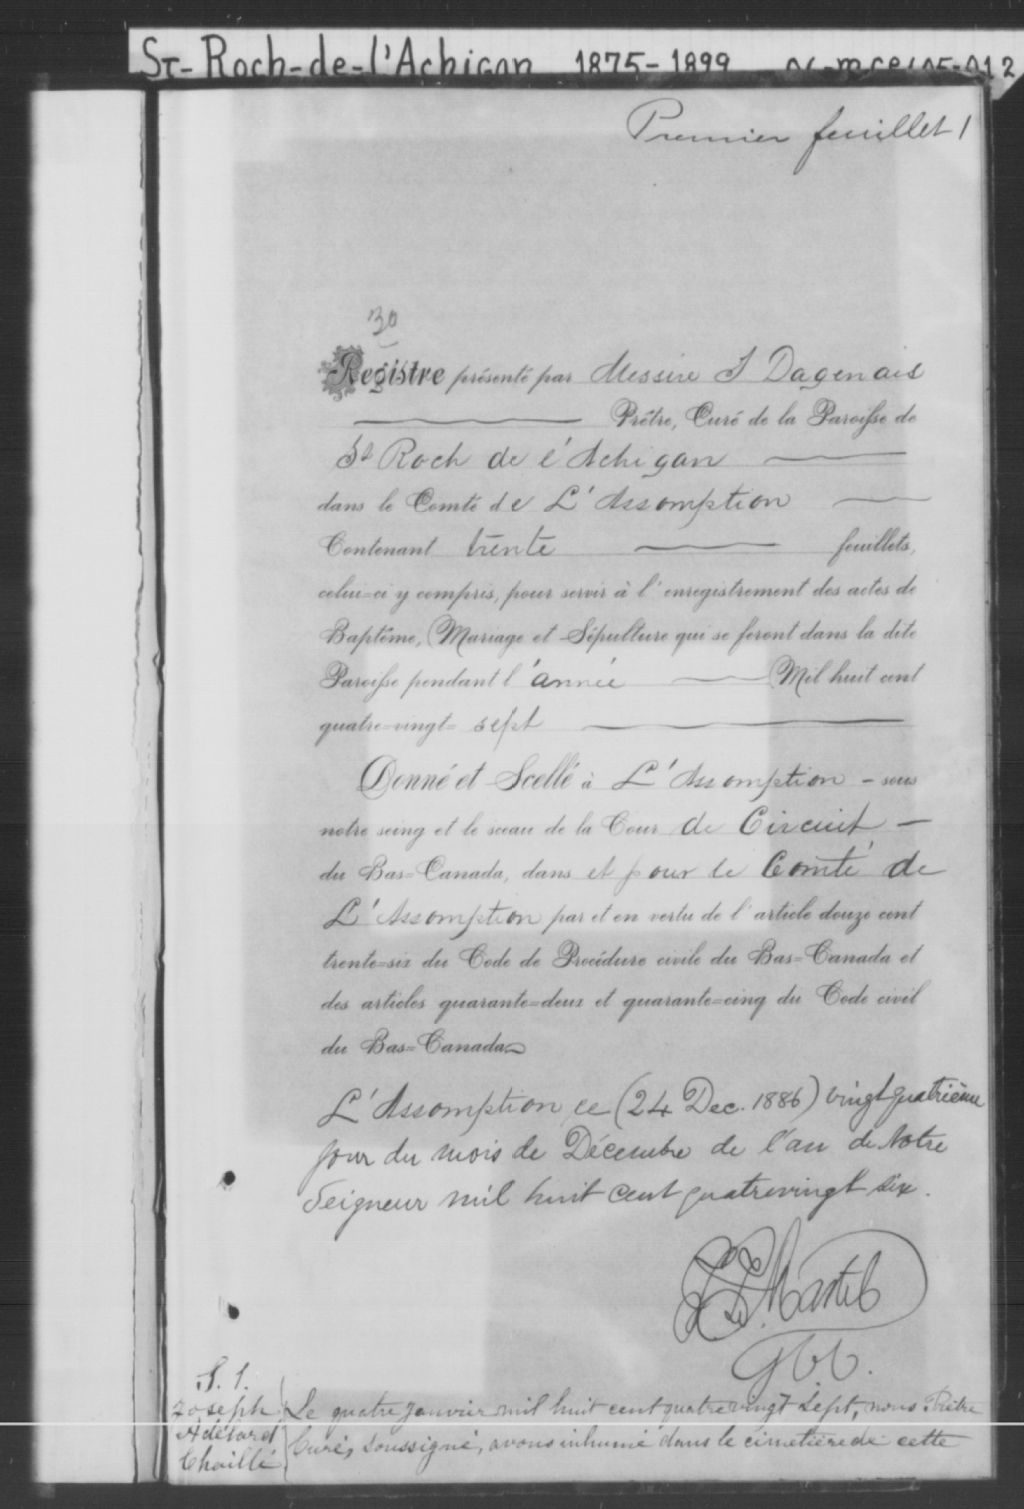 St-Roch-de-l'Achigan 1875-1899
Premier feuillet 1
30
Registre présenté par Messire J Dagenais
Prêtre, Curé de la Paroisse de
St Roch de l'Achigan
dans le Comté de L'Assomption
Contenant trente feuillets,
celui-ci y compris, pour servir à l'enregistrement des actes de
Baptême, Mariage et Sépulture qui se feront dans la dite
Paroisse pendant l'année Mil huit cent
quatre-vingt-sept
Donné et Scellé à L'Assomption - sous
notre seing et le sceau de la Cour de Circuit -
du Bas-Canada, dans et pour le Comté de
L'Assomption par et en vertu de l'article douze cent
trente-six du Code de Procédure civile du Bas-Canada et
des articles quarante-deux et quarante-cinq du Code civil
du Bas-Canada
L'Assomption ce (24 Dec. 1886) vingt quatrième
jour du mois de Décembre de l'an de Notre
Seigneur mil huit cent quatrevingt six.
Martel
S. 1.
Joseph
Adélard
Chaillé
Le quatre Janvier mil huit cent quatre vingt Sept, nous Prêtre
Curé, soussigné, avons inhumé dans le cimetière de cette